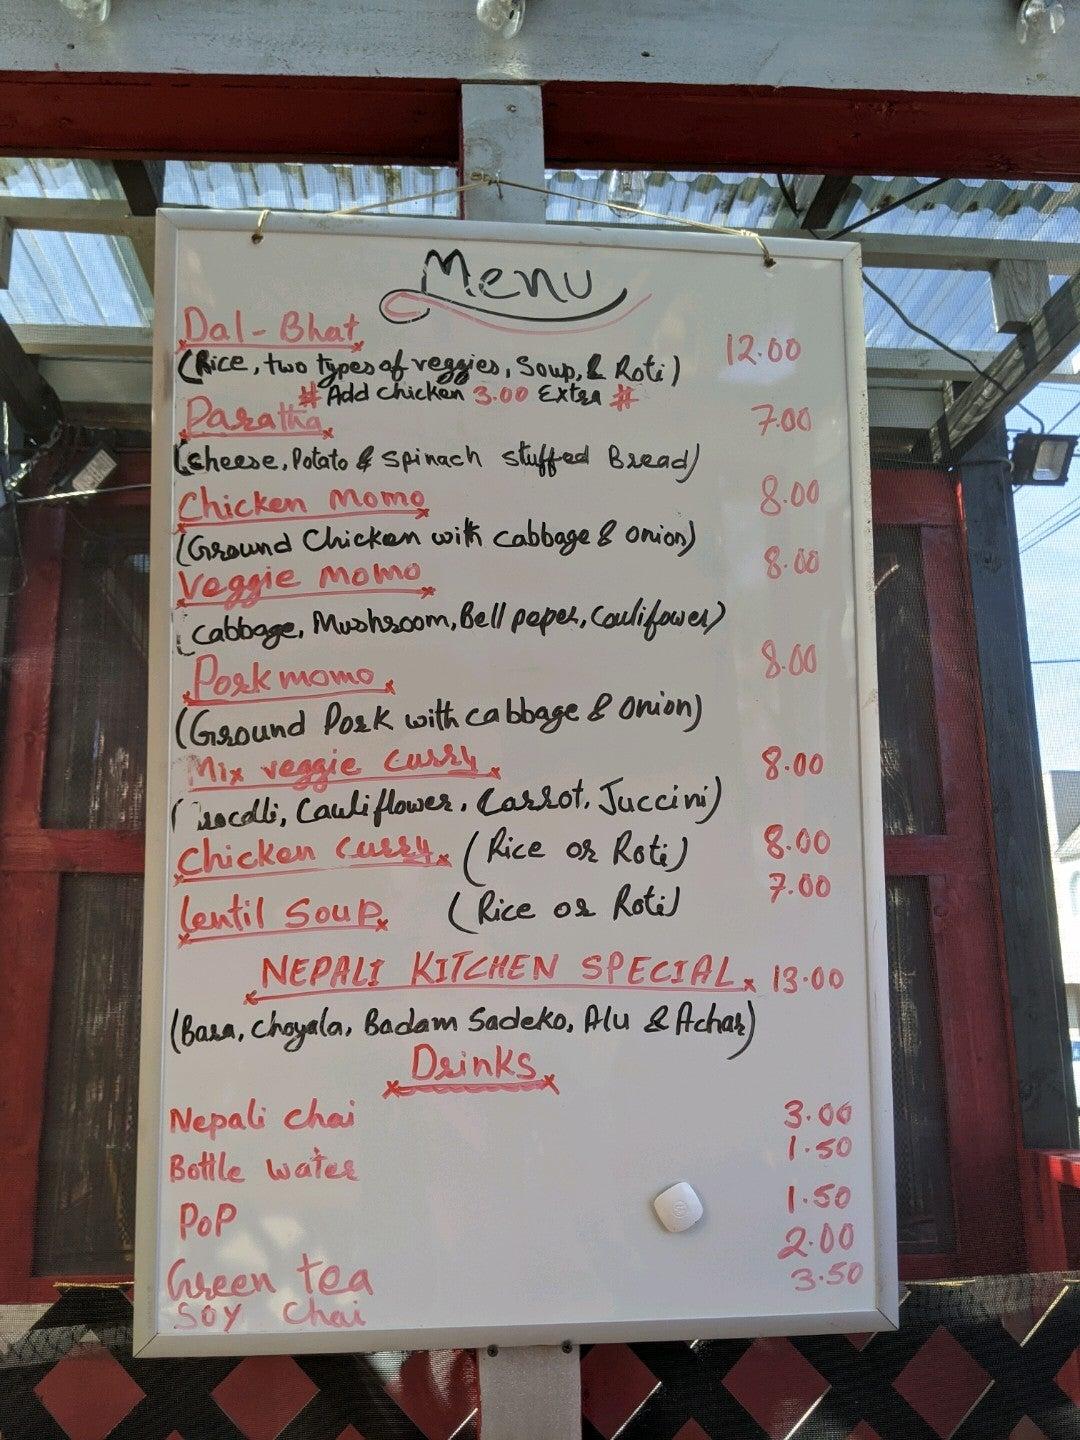 Menu
Dal-Bhat 12.00
(Rice, two types of veggies, Soup, & Roti)
# Add chicken 3.00 Extra #
Paratha 7.00
(cheese, Potato & spinach stuffed Bread)
Chicken momo 8.00
(Ground Chicken with cabbage & onion)
Veggie momo 8.00
(cabbage, Mushroom, Bell peper, Cauliflower)
Pork momo 8.00
(Ground Pork with cabbage & onion)
Mix veggie curry 8.00
(rocolli, Cauliflower, Carrot, Juccini)
Chicken curry (Rice or Roti) 8.00
lentil soup (Rice or Roti) 7.00
NEPALI KITCHEN SPECIAL 13.00
(Bara, Choyala, Badam Sadeko, Alu & Achar)
Drinks
Nepali chai 3.00
Bottle water 1.50
PoP 1.50
Green tea 2.00
SOY chai 3.50